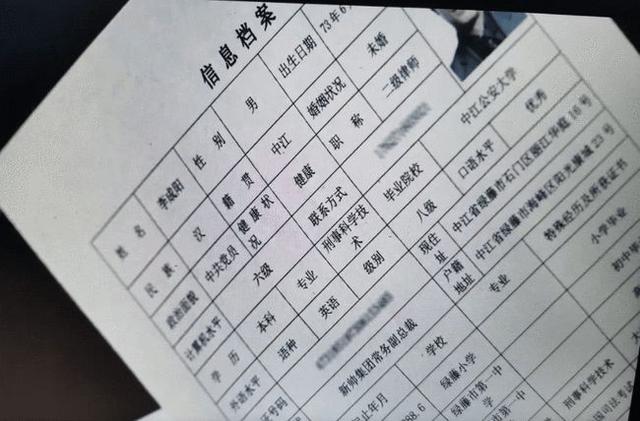 信息档案
姓名 李成阳 性别 男 出生日期 73年6
民族 汉 籍贯 中江 婚姻状况 未婚
政治面貌 中共党员 健康状况 健康 职称 二级律师
计算机水平 六级 联系方式
学历 本科 专业 刑事科学技术 毕业院校 中江公安大学
外语水平 语种 英语 级别 八级 口语水平 优秀
证号码 现住址 中江省绿藤市石门区丽江华庭18号
新帅集团常务副总裁 户籍地址 中江省绿藤市海峰区阳光馨城23号
止年月 学校 专业 特殊经历及所获证书
88.6 绿藤小学 小学毕业
绿藤市第一中学 初中毕
市第一中
刑事科学技术
国司法考试